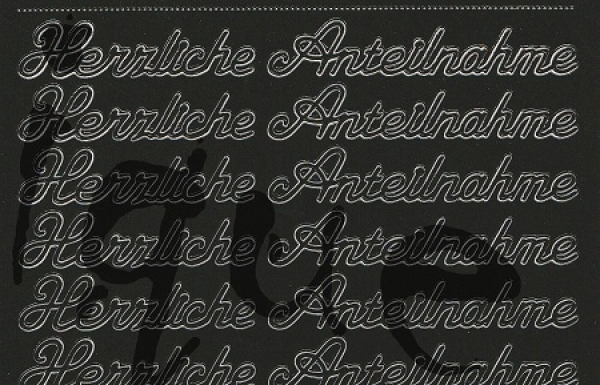 Herzliche Anteilnahme
Herzliche Anteilnahme
Herzliche Anteilnahme
Herzliche Anteilnahme
Herzliche Anteilnahme
Herzliche Anteilnahme